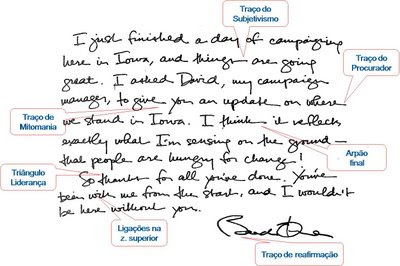 Traço do
Subjetivismo
I just finished a day of campaigning
here in Iowa, and things are going
Traço do
Procurador
great. I asked David, my campaign
manager, to give you an update on where
Traço de
Mitomania
we stand in Iowa. I think it reflects
exactly what I'm sensing on the ground—
Arpão
final
that people are hungry for change!
Triângulo
Liderança
So thanks for all you've done. You've
been with me from the start, and I wouldn't
be here without you.
Ligações na
z. superior
Traço de reafirmação